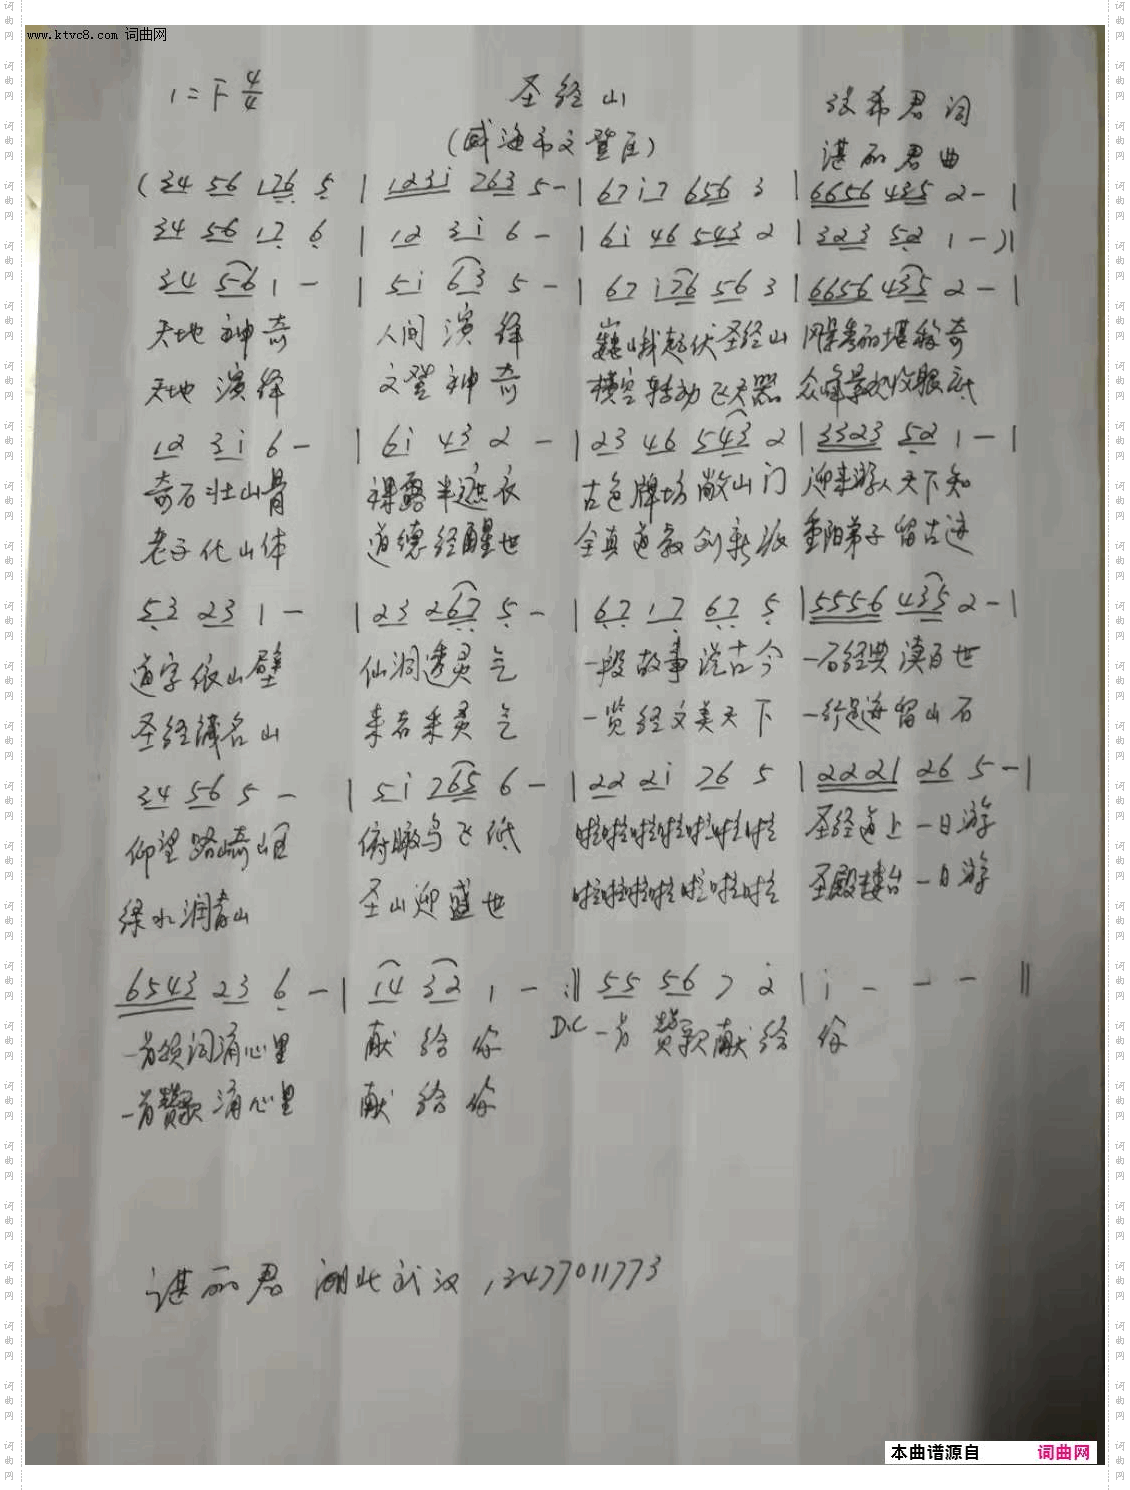 www.ktvc8.com 词曲网
1=F 4/4 圣经山 张希君词
(威海市文登区) 湛丽君曲
(34 56 176 5 | 123i 763 5- | 67i7 656 3 | 6656 435 2- |
34 56 17 6 | 12 3i 6- | 6i 46 543 2 | 323 52 1-)|
34 56 1 - | 5i 63 5- | 67 i76 56 3 | 6656 435 2- |
天地神奇 人间演绎 巍峨起伏圣经山 风景秀丽堪称奇
天地演绎 文登神奇 横空转动飞天器 众峰景观收眼底
12 3i 6- | 6i 43 2 - | 23 46 543 2 | 3323 52 1-|
奇石壮山骨 裸露半遮衣 古色牌坊敞山门 迎来游人天下知
老子化山体 道德经醒世 全真道教创新派 重阳弟子留古迹
53 23 1 - | 23 267 5- | 67 17 67 5 | 5556 435 2-|
道字依山壁 仙洞透灵气 一段故事说古今 一石经典漠百世
圣经识名山 来者采灵气 一览经文美天下 一行足迹留山石
34 56 5 - | 5i 765 6- | 22 2i 76 5 | 2221 26 5-|
仰望路崎岖 俯瞰鸟飞低 啦啦啦啦啦啦啦 圣经道上一日游
绿水润青山 圣山迎盛世 啦啦啦啦啦啦啦 圣殿楼台一日游
6543 23 6 -| 14 32 1 - :|| 55 56 7 2 | i - - - ||
一首颂词涌心里 献给你 D.C 一首赞歌献给你
一首赞歌涌心里 献给你
湛丽君 湖北武汉 13477011773
本曲谱源自 词曲网